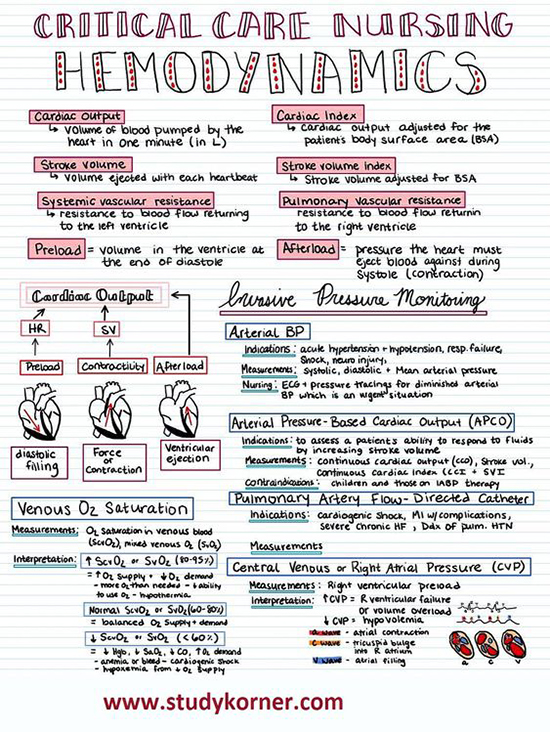 CRITICAL CARE NURSING
HEMODYNAMICS
Cardiac output
↳ volume of blood pumped by the
heart in one minute (in L)
Cardiac Index
↳ cardiac output adjusted for the
patient's body surface area (BSA)
Stroke volume
↳ volume ejected with each heartbeat
Stroke volume index
↳ Stroke volume adjusted for BSA
Systemic vascular resistance
↳ resistance to blood flow returning
to the left ventricle
Pulmonary vascular resistance
resistance to blood flow returnin
to the right ventricle
Preload = volume in the ventricle at
the end of diastole
Afterload = pressure the heart must
eject blood against during
systole (contraction)
Cardiac Output
HR
SV
Preload
Contractility
Afterload
diastolic
filling
Force
of
contraction
Ventricular
ejection
Invasive Pressure Monitoring
Arterial BP
Indications: acute hypertension + hypotension, resp. failure,
shock, neuro injury,
Measurements: Systolic, diastolic + Mean arterial pressure
Nursing: ECG + pressure tracings for diminished arterial
BP which is an urgent situation
Arterial Pressure-Based Cardiac Output (APCO)
Indications: to assess a patient's ability to respond to fluids
by increasing stroke volume
Measurements: continuous cardiac output (CCO), Stroke vol.,
continuous cardiac index (CCI + SVI
Contraindications: children and those on IABP therapy
Pulmonary Artery Flow-Directed Catheter
Indications: Cardiogenic shock, MI w/complications,
severe chronic HF, Ddx of pulm. HTN
Measurements
Central Venous or Right Atrial Pressure (CVP)
Measurements: Right ventricular preload
Interpretation: ↑CVP = R ventricular failure
or volume overload
↓ CVP = hypovolemia
a wave - atrial contraction
c wave - tricuspid bulge
into R atrium
v wave - atrial filling
a c v
Venous O₂ Saturation
Measurements: O₂ saturation in venous blood
(ScvO₂), mixed venous O₂ (SvO₂)
Interpretation: ↑ ScvO₂ or SvO₂ (80-95%)
= ↑ O₂ supply + ↓ O₂ demand
- more O₂ than needed - ↓ ability
to use O₂ - hypothermia
Normal ScvO₂ or SvO₂ (60-80%)
= balanced O₂ supply + demand
↓ ScvO₂ or SvO₂ (<60%)
= ↓ Hgb, ↓ SaO₂, ↓ CO, ↑ O₂ demand
- anemia or bleed - cardiogenic shock
- hypoxemia from ↓ O₂ supply
www.studykorner.com